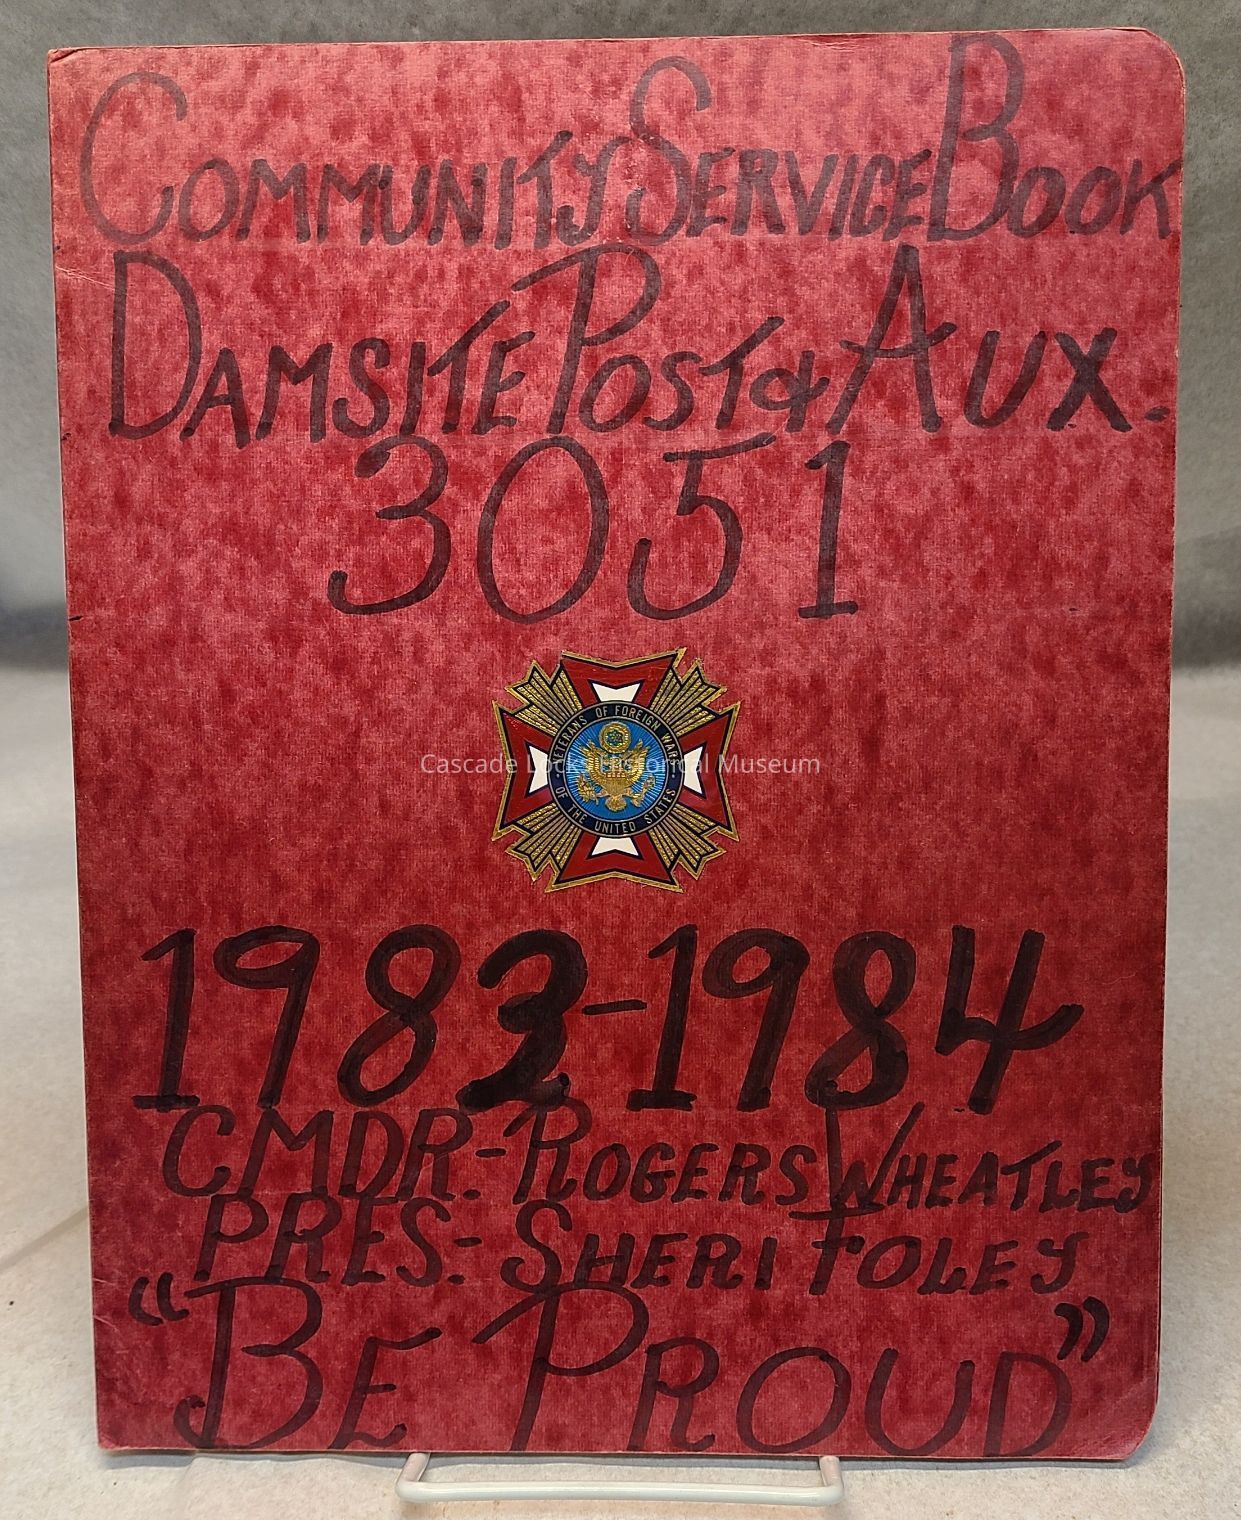 Community Service Book
Damsite Post & Aux.
3051
VETERANS OF FOREIGN WARS
OF THE UNITED STATES
Cascade Locks Historical Museum
1983-1984
CMDR.-Rogers Wheatley
PRES.-Sheri Foley
"Be Proud"